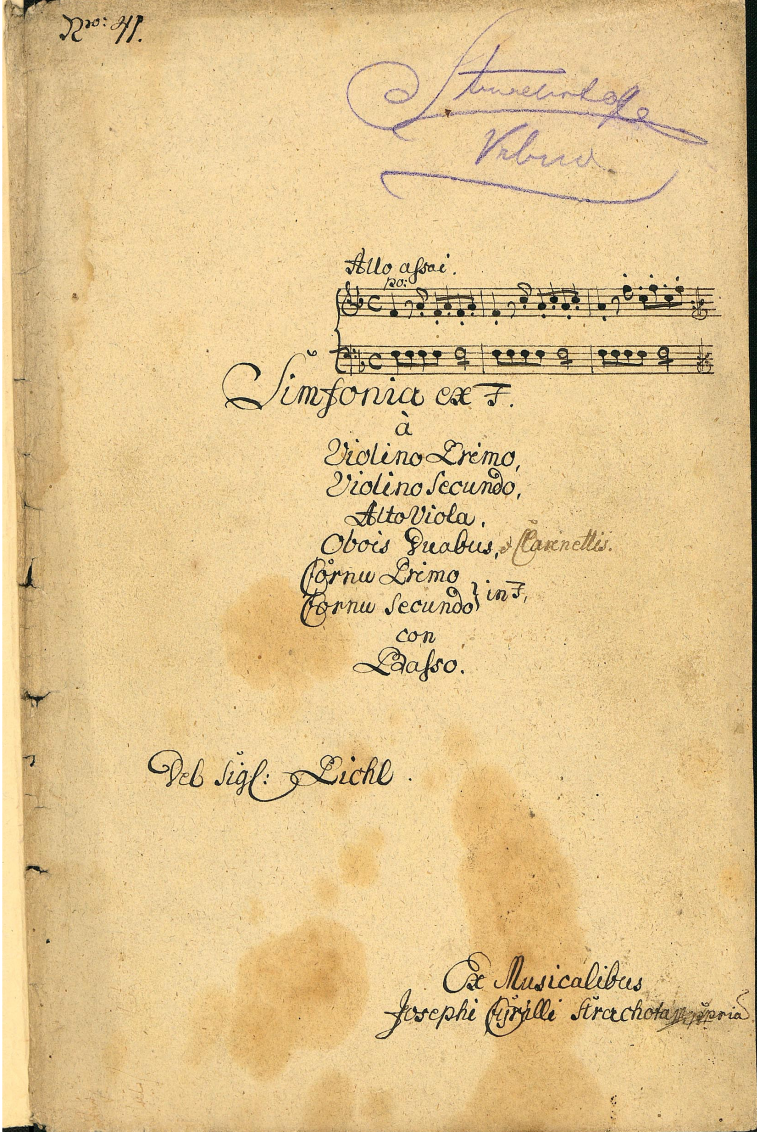 Nro: 41.
Allo assai.
po:
Simfonia ex F.
à
Violino Primo,
Violino Secundo,
Alto Viola,
Obois Duabus, è Clarinettis.
Cornu Primo
Cornu Secundo } in F,
con
Basso.
Del Sigl: Pichl.
Ex Musicalibus
Josephi Cyrilli Strachota